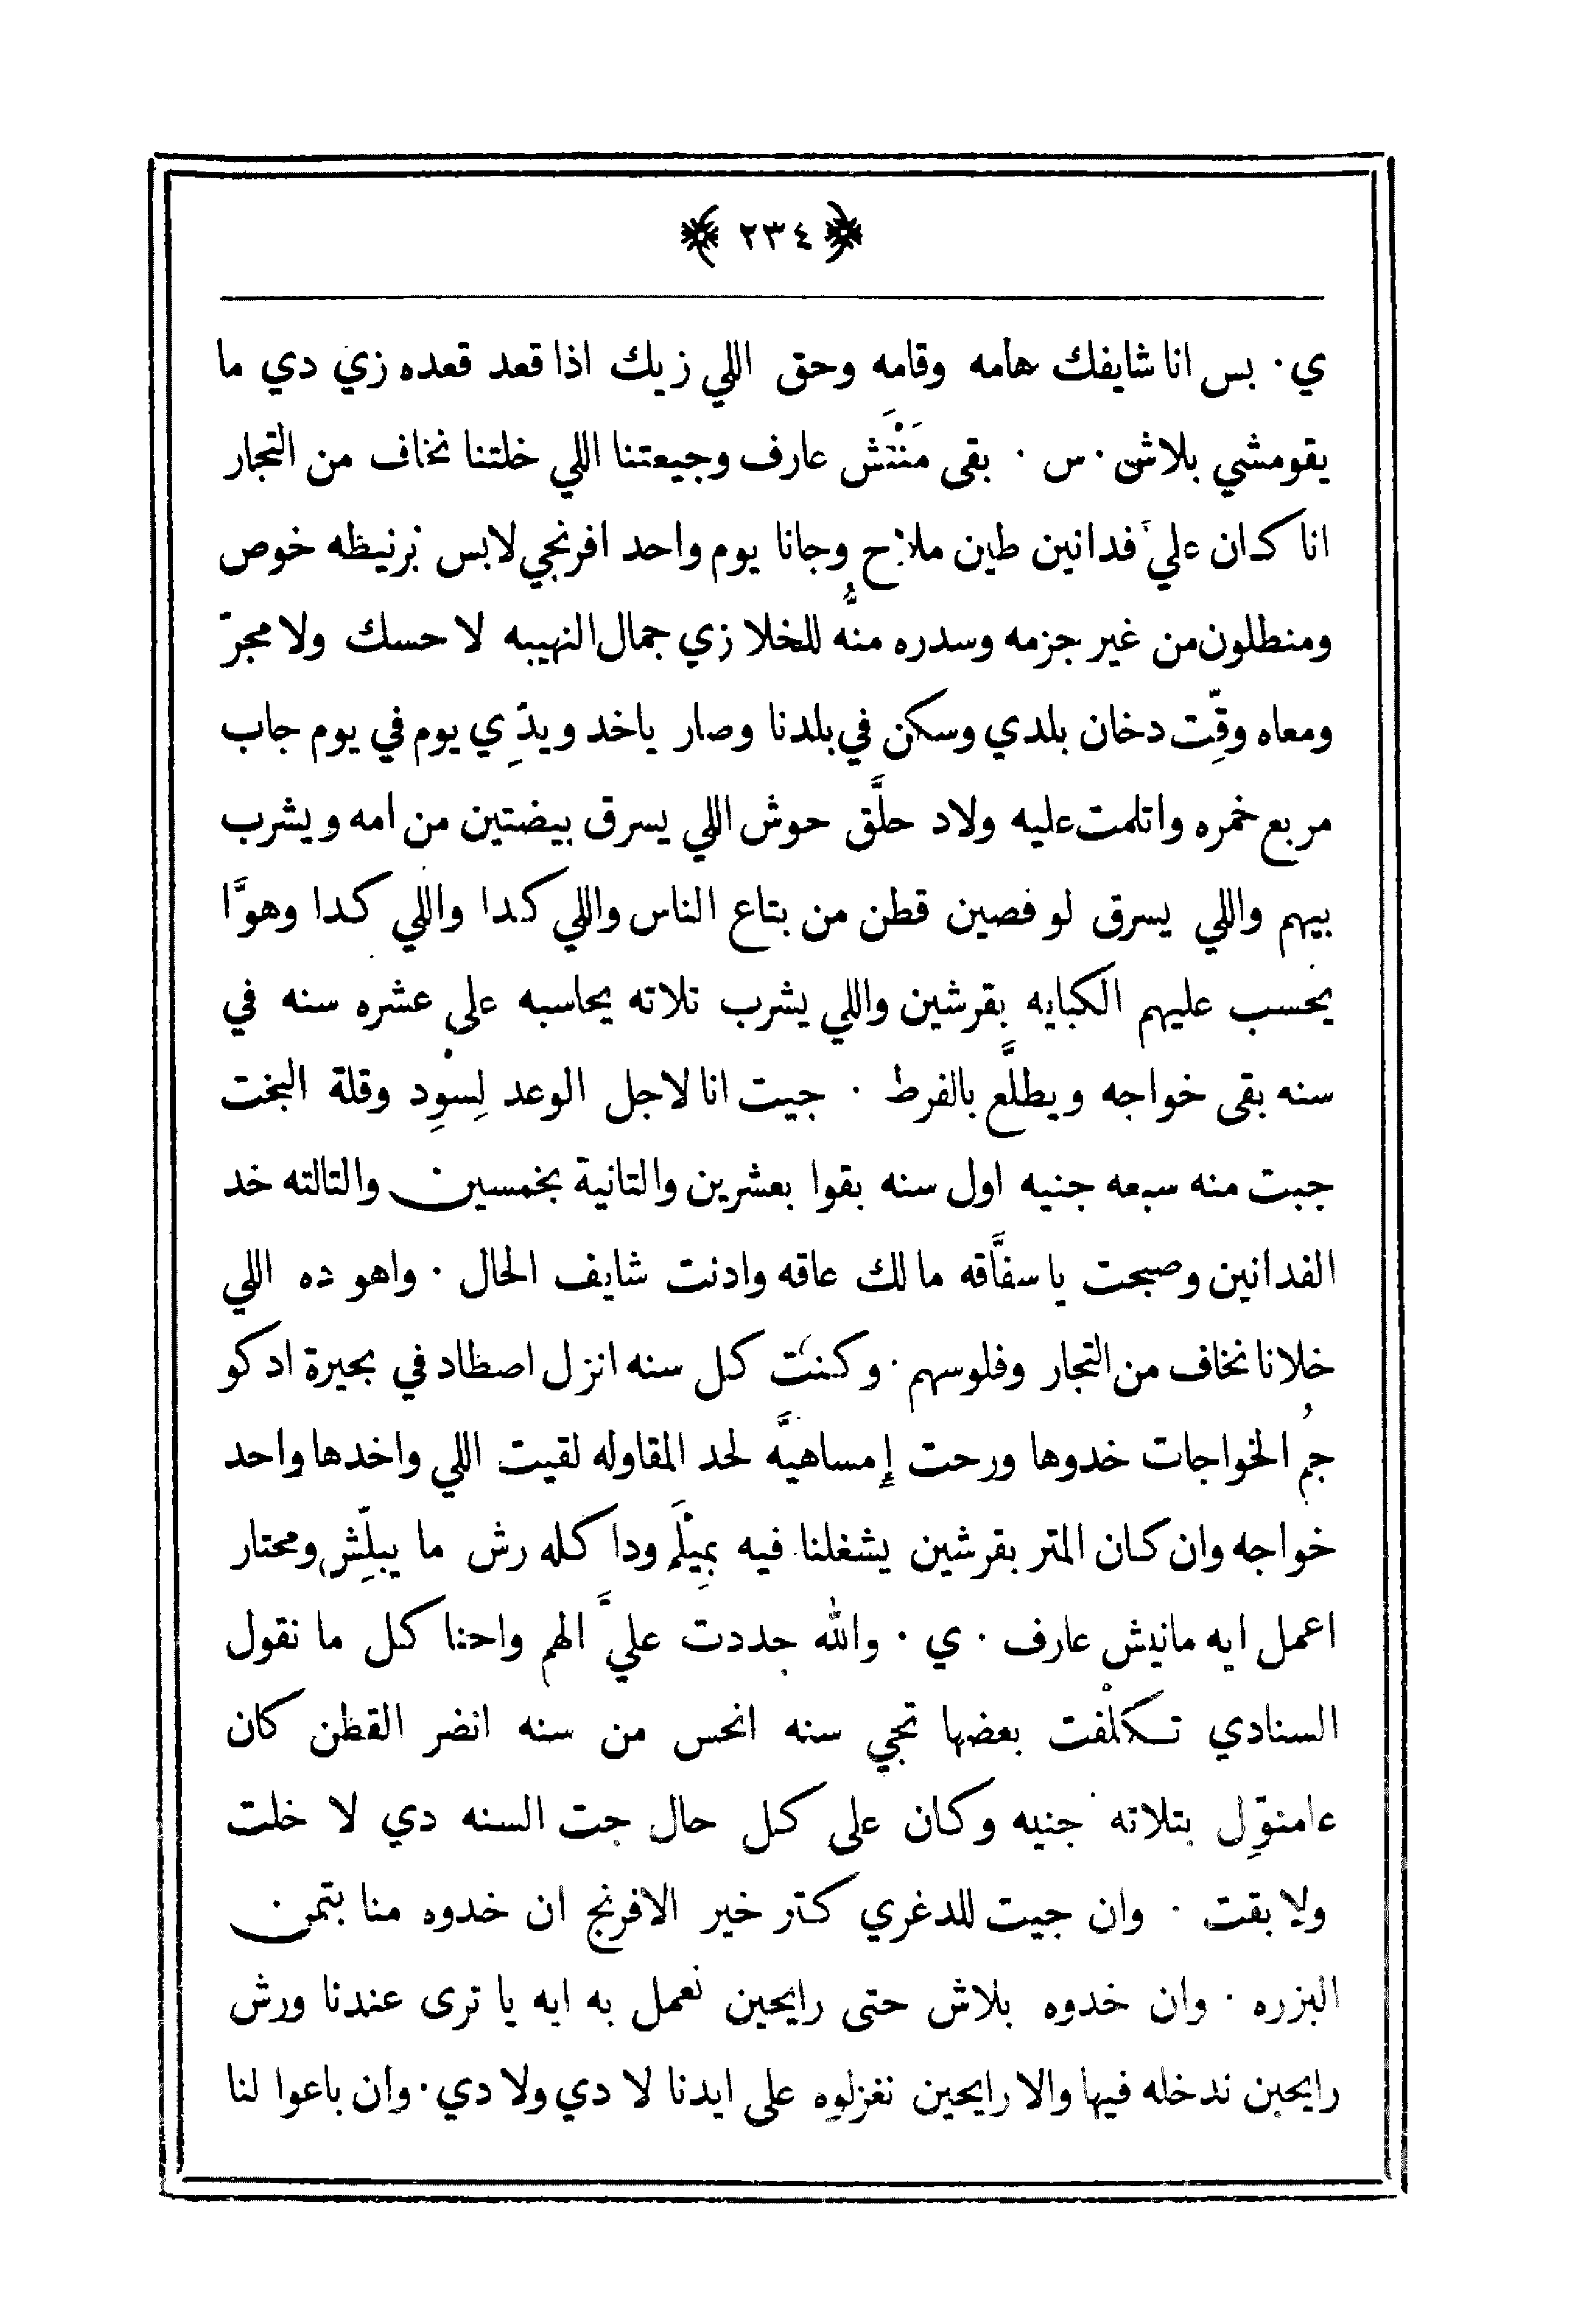 ﴿ ٢٣٤ ﴾
ي · بس انا شايفك هامه وقامه وحق اللي زيك اذا قعد قعده زي دي ما
يقومشي بلاش · س · بقى مَنْتَش عارف وجيعتنا اللي خلتنا نخاف من التجار
انا كان عليَّ فدانين طين ملاح وجانا يوم واحد افرنجي لابس برنيطه خوص
ومنطلون من غير جزمه وسدره منهُّ للخلا زي جمال النهيبه لا حسك ولا مجرّ
ومعاه وقِّت دخان بلدي وسكن في بلدنا وصار ياخد ويدِّي يوم في يوم جاب
مربع خمره واتلمت عليه ولاد حلَّق حوش اللي يسرق بيضتين من امه ويشرب
بيهم واللي يسرق لو فصين قطن من بتاع الناس واللي كدا واللي كدا وهوَّا
يحسب عليهم الكبايه بقرشين واللي يشرب تلاته يحاسبه على عشره سنه في
سنه بقى خواجه ويطلَّع بالفرط · جيت انا لاجل الوعد لِسْوِد وقلة البخت
جبت منه سبعه جنيه اول سنه بقوا بعشرين والتانية بخمسين والتالته خد
الفدانين وصبحت يا سفَّاقه مالك عاقه وادنت شايف الحال · واهو ده اللي
خلانا نخاف من التجار وفلوسهم · وكنت كل سنه انزل اصطاد في بحيرة ادكو
جُم الخواجات خدوها ورحت إمساهيَّه لحد المقاوله لقيت اللي واخدها واحد
خواجه وان كان المتر بقرشين يشغلنا فيه بمِيْلَم ودا كله رش ما يبلِّش ومحتار
اعمل ايه مانيش عارف · ي · والله جددت عليَّ الهم واحنا كل ما نقول
السنادي تكلْفت بعضها تجي سنه انحس من سنه انضر القطن كان
عامنوِّل بتلاته جنيه وكان على كل حال جت السنه دي لا خلت
ولا بقت · وان جيت للدغري كتر خير الافرنج ان خدوه منا بتمن
البزره · وان خدوه بلاش حتى رايحين نعمل به ايه يا ترى عندنا ورش
رايحين ندخله فيها والا رايحين نغزلوه على ايدنا لا دي ولا دي · وان باعوا لنا